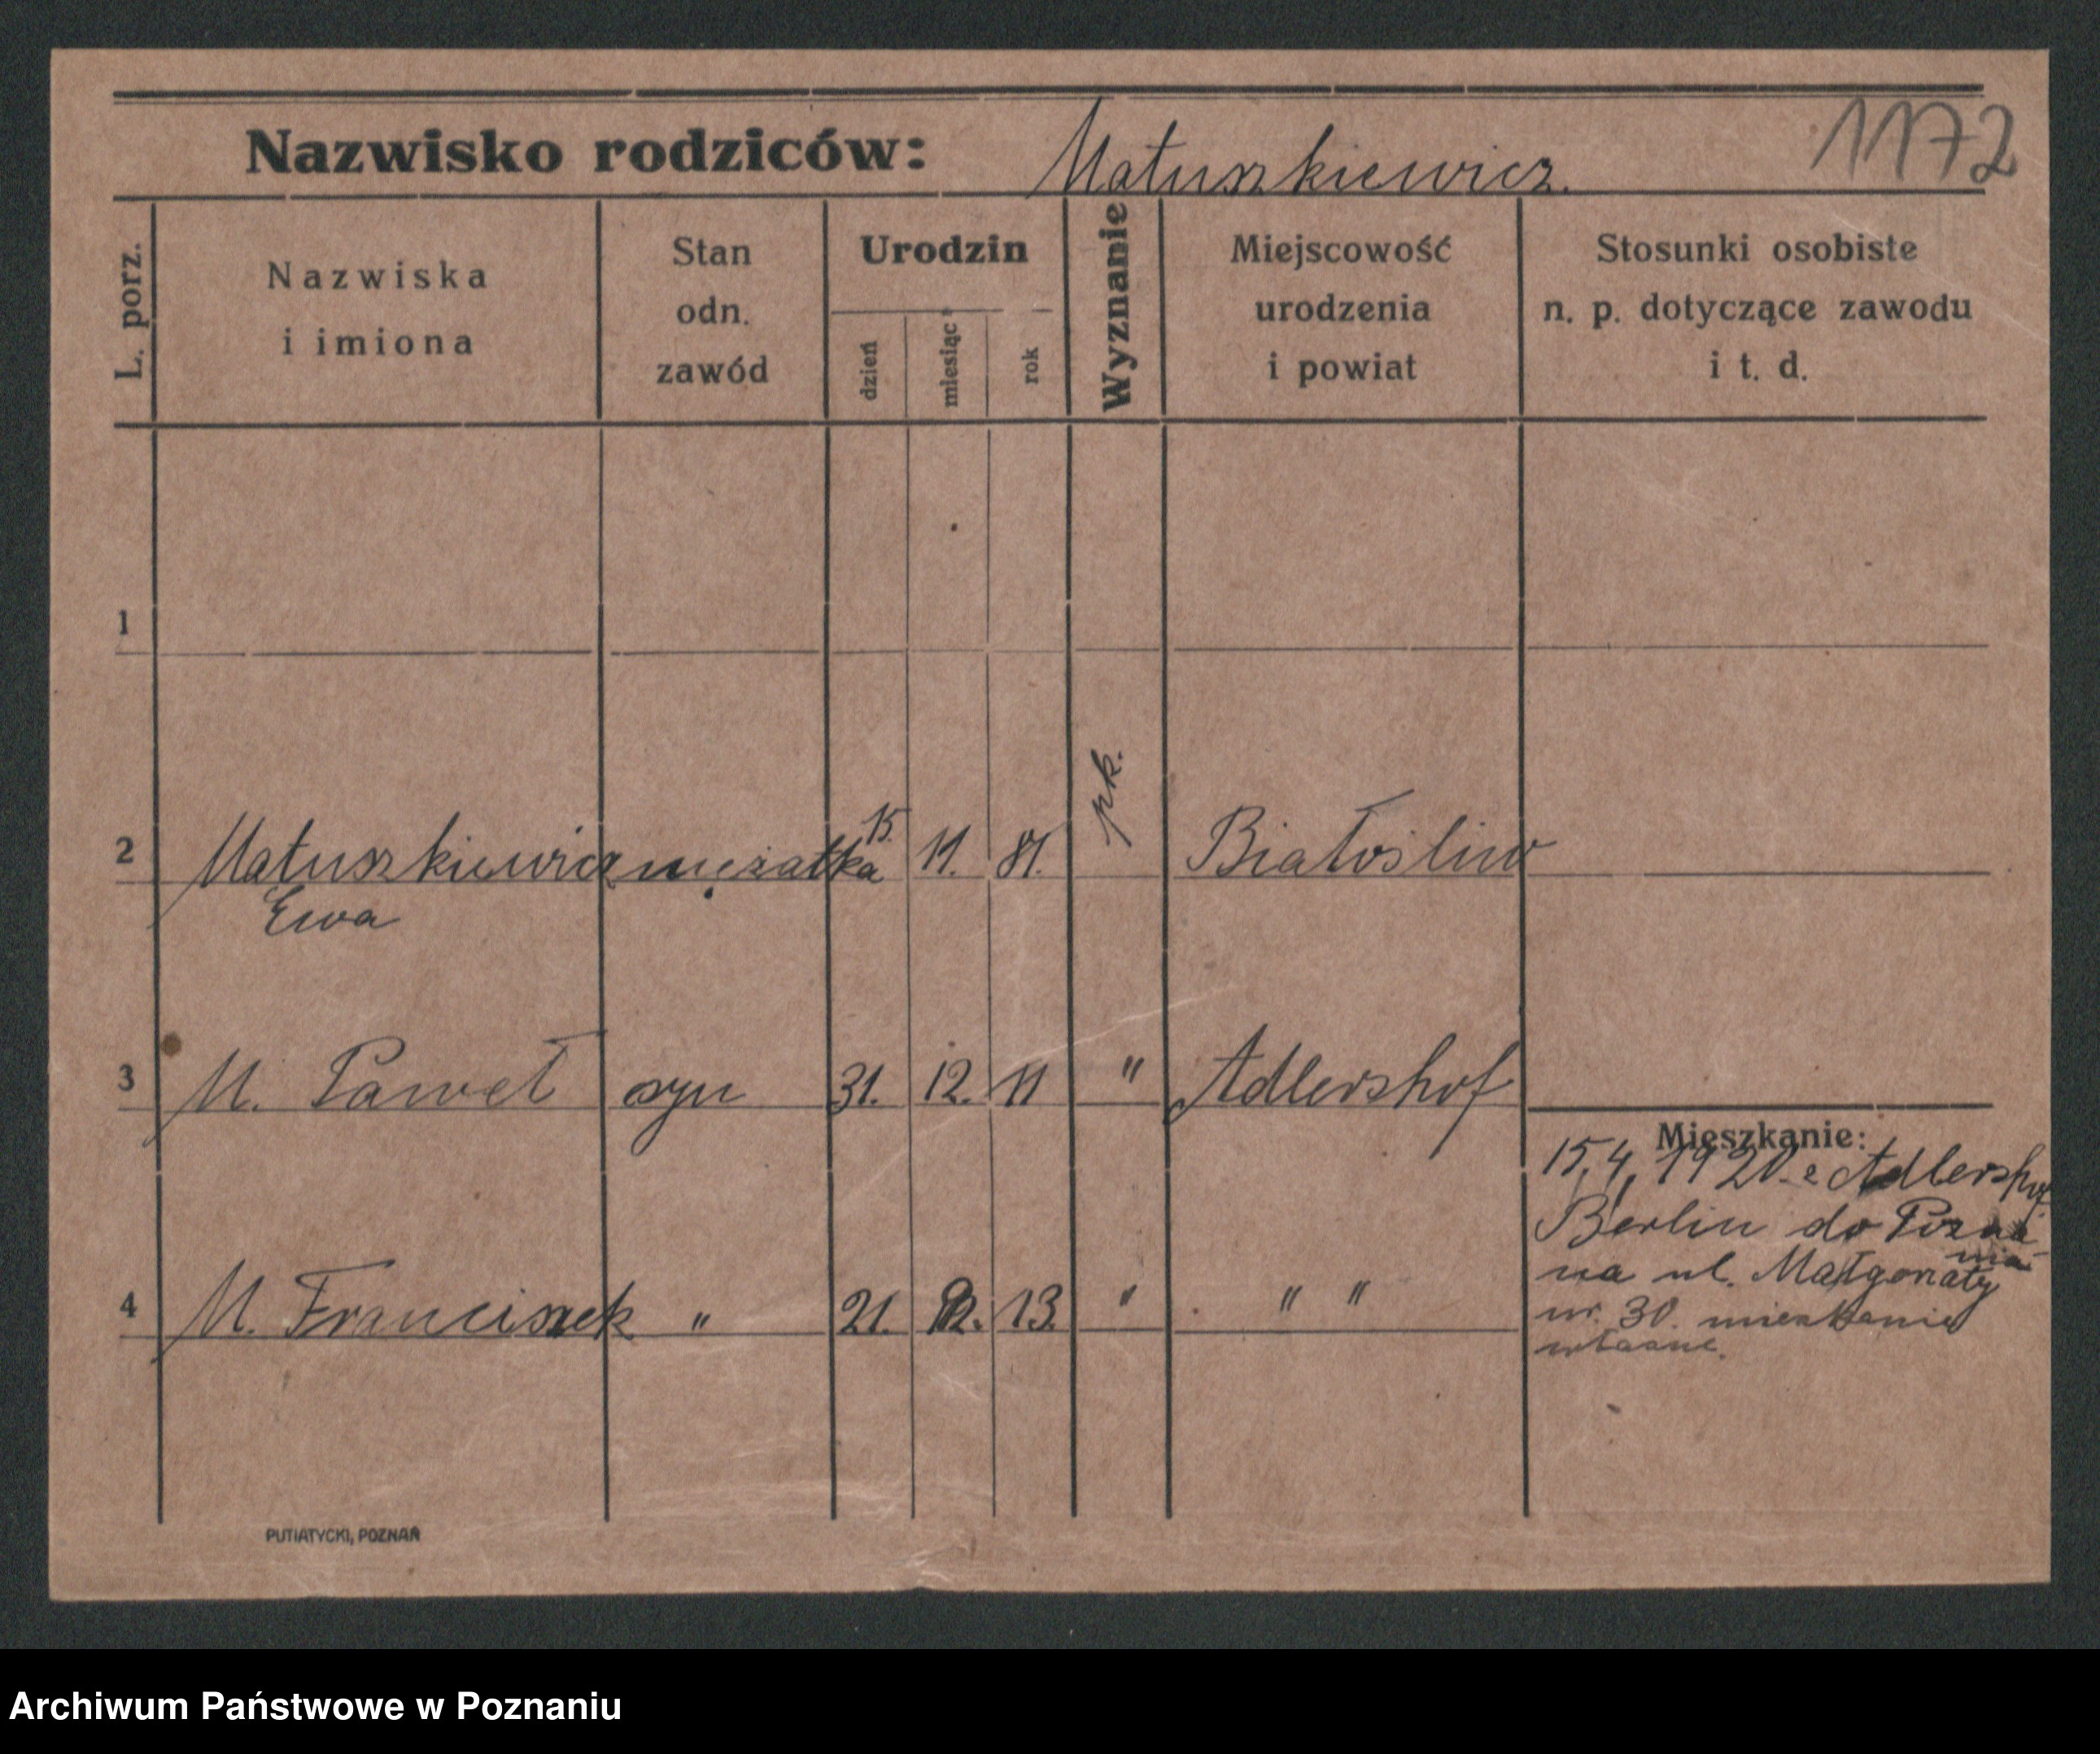 Nazwisko rodziców: Matuszkiewicz. 1172
L. porz.
Nazwiska
i imiona
Stan
odn.
zawód
Urodzin
dzień
miesiąc
rok
Wyznanie
Miejscowość
urodzenia
i powiat
Stosunki osobiste
n. p. dotyczące zawodu
i t. d.
1
2 Matuszkiewicz mężatka 15. 11. 81. rk. Białośliw
Ewa
3 M. Paweł syn 31. 12. 11 " Adlershof
4 M. Franciszek " 21. 13. " " "
Mieszkanie:
15.4.1920. z Adlershof
Berlin do Pozna
nia
na ul. Małgorzaty
nr. 30. mieszkanie
własne.
PUTIATYCKI, POZNAŃ
Archiwum Państwowe w Poznaniu